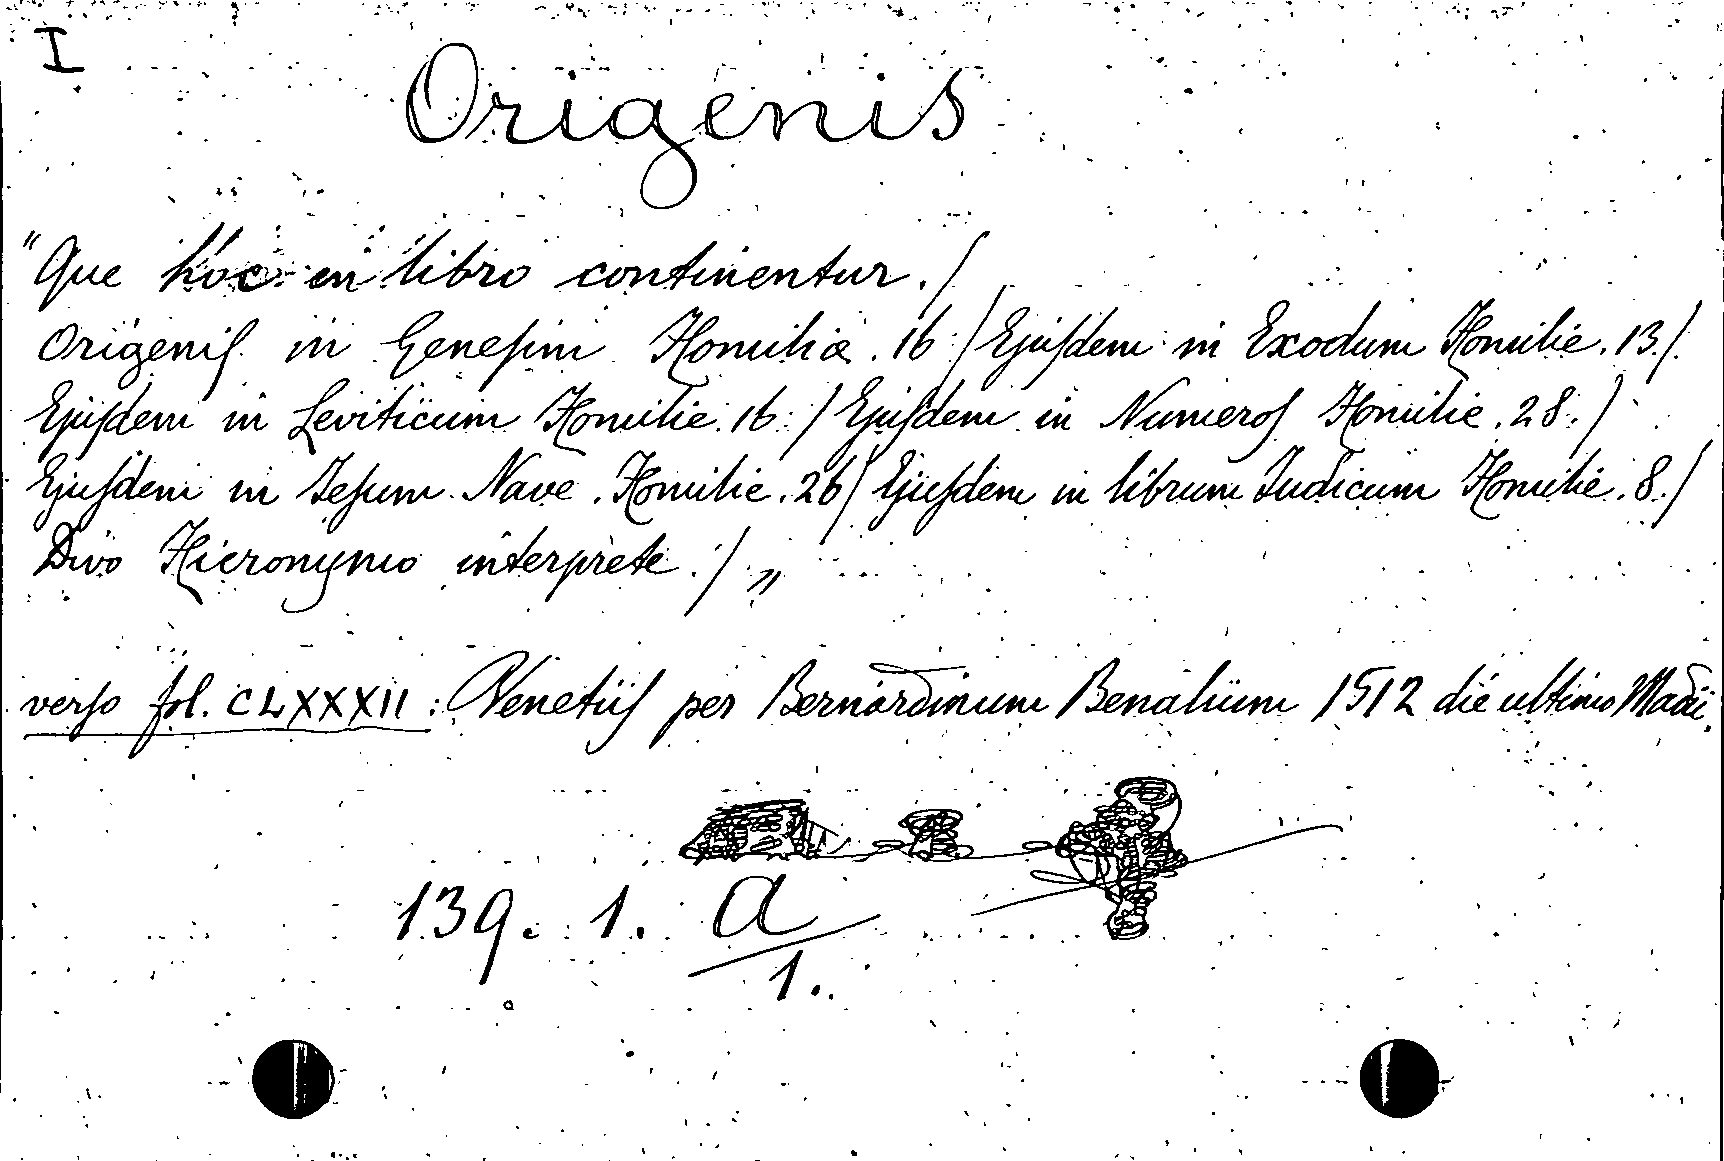 I
Origenis
"Que hoc in libro continentur./
Origenis in Genesim Homiliæ. 16./ Ejusdem in Exodum Homilie. 13./
Ejusdem in Leviticum Homilie. 16./ Ejusdem in Numeros Homilie. 28./
Ejusdem in Jesum Nave. Homilie. 26/ Ejusdem in librum Judicum Homilie. 8./
Divo Hieronymo interprete./„
verso fol. CLXXXII: Venetiis per Bernardinum Benalium 1512 die ultimo Madii.
139. 1. a/1.